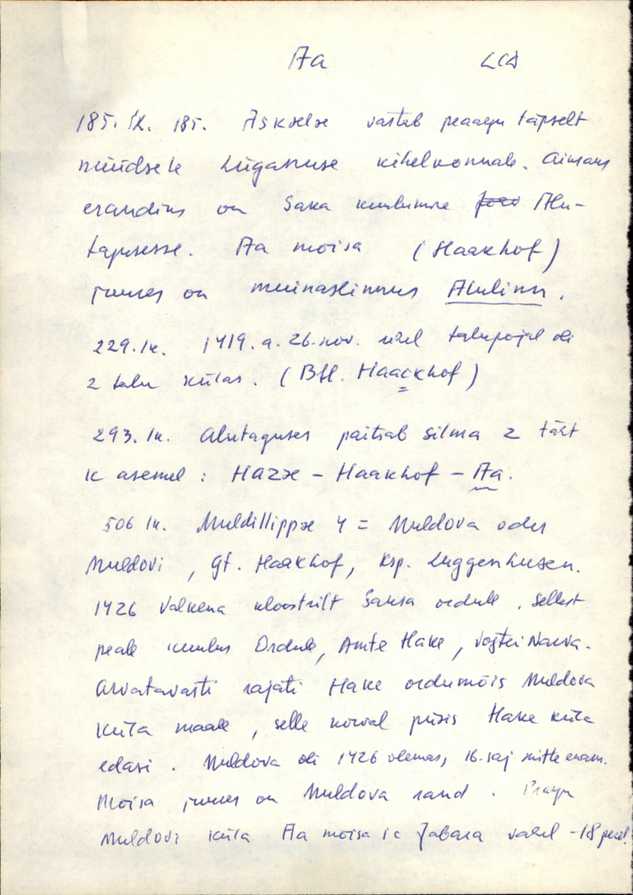 Aa LCD
185. lk. 185. Askælæ vastab peaaegu täpselt
nüüdsele Lüganuse kihelkonnale. Ainsaks
erandiks on Saka kuulumine Alu-
tagusesse. Aa mõisa (Haakhof)
juures on muinaslinnus Alulinn.
229. lk. 1419. a. 26. nov. ühel talupojal oli
2 talu külas. (Bfl. Haackhof)
293. lk. Alutaguses paistab silma z täht
k asemel: Hazæ - Haakhof - Aa.
506 lk. Muldillippæ 4 = Muldova oder
Muldovi, Gt. Haakhof, Ksp. Luggenhusen.
1426 Valkena kloostrilt Saksa ordule. Sellest
peale kuulus Ordule, Amte Hake, vogtei Narva.
Arvatavasti rajati Hake ordumõis Muldova
küla maale, selle kõrval püsis Hake küla
edasi. Muldova oli 1426 olemas, 16. saj mitte enam.
Mõisa juures on Muldova rand. Praegu
Muldovi küla Aa mõisa ja Jabara vahel -18 peret.